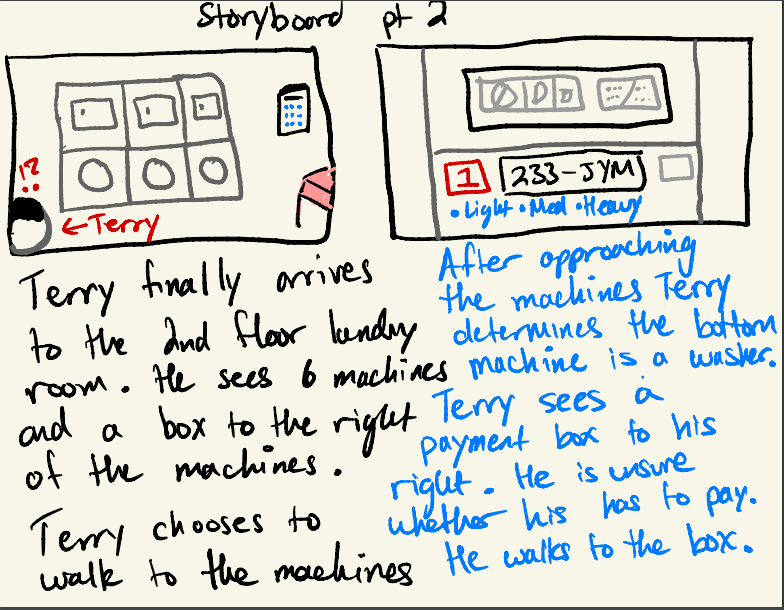 Storyboard pt 2
!?
←Terry
1 233-JYM
•Light •Med •Heavy
Terry finally arrives
to the 2nd floor lundry
room. He sees 6 machines
and a box to the right
of the machines.
Terry chooses to
walk to the machines
After approaching
the machines Terry
determines the bottom
machine is a washer.
Terry sees a
payment box to his
right. He is unsure
whether his has to pay.
He walks to the box.